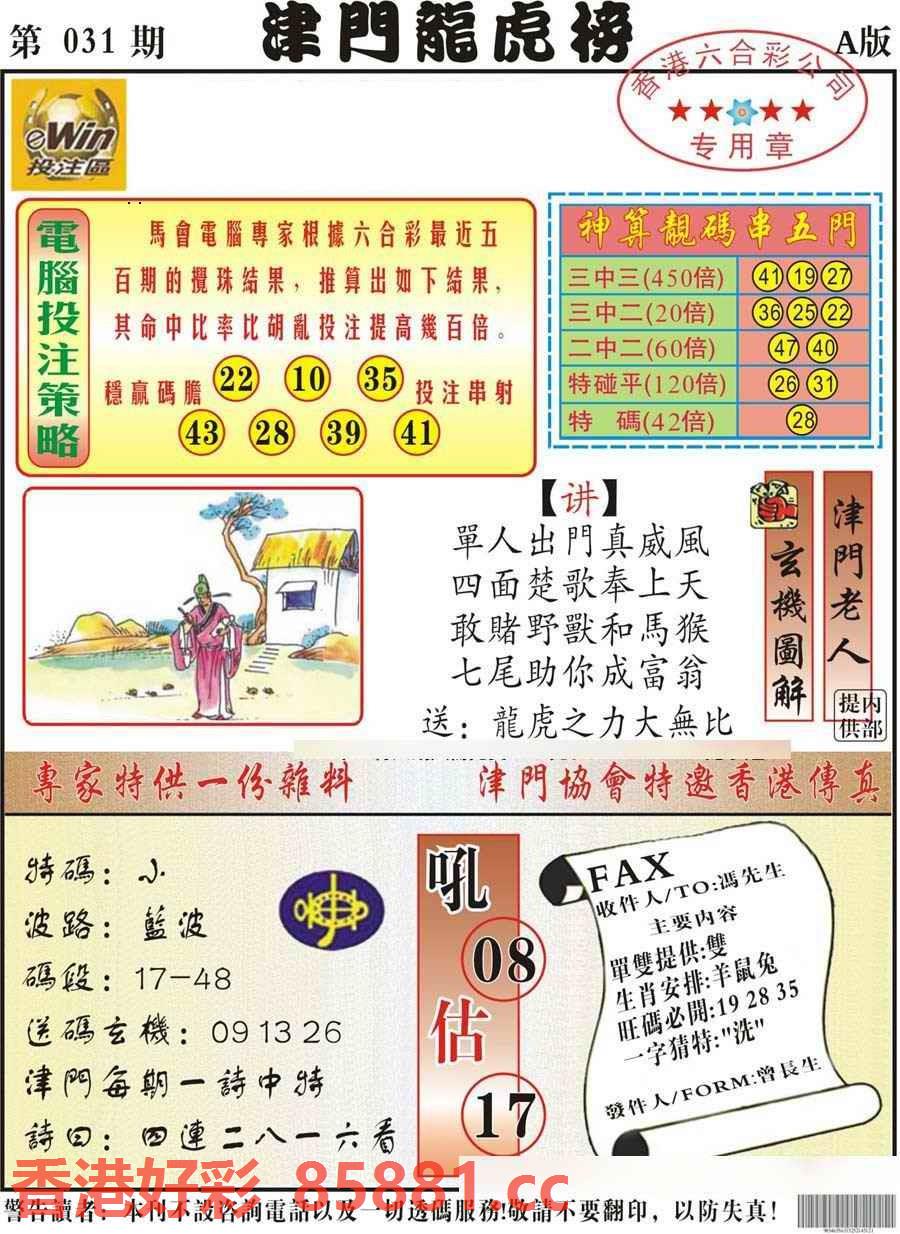 第 031 期
津門龍虎榜
A版
香港六合彩公司
★★★★
专用章
eWin
投注區
電腦投注策略
馬會電腦專家根據六合彩最近五
百期的攪珠結果，推算出如下結果，
其命中比率比胡亂投注提高幾百倍。
穩贏碼膽 22 10 35 投注串射
43 28 39 41
神算靚碼串五門
三中三(450倍) 41 19 27
三中二(20倍) 36 25 22
二中二(60倍) 47 40
特碰平(120倍) 26 31
特 碼(42倍) 28
【讲】
單人出門真威風
四面楚歌奉上天
敢賭野獸和馬猴
七尾助你成富翁
送：龍虎之力大無比
玄機圖解
津門老人
内部提供
專家特供一份雜料
津門協會特邀香港傳真
特碼：小
波路：藍波
碼段：17-48
送碼玄機：09 13 26
津門每期一詩中特
詩曰：四連二八一六看
吼
08
估
17
FAX
收件人/TO:馮先生
主要内容
單雙提供:雙
生肖安排:羊鼠兔
旺碼必開:19 28 35
一字猜特:"洗"
發件人/FORM:曾長生
香港好彩 85881.cc
警告讀者：本刊不設咨詢電話以及一切透碼服務!敬請不要翻印，以防失真!